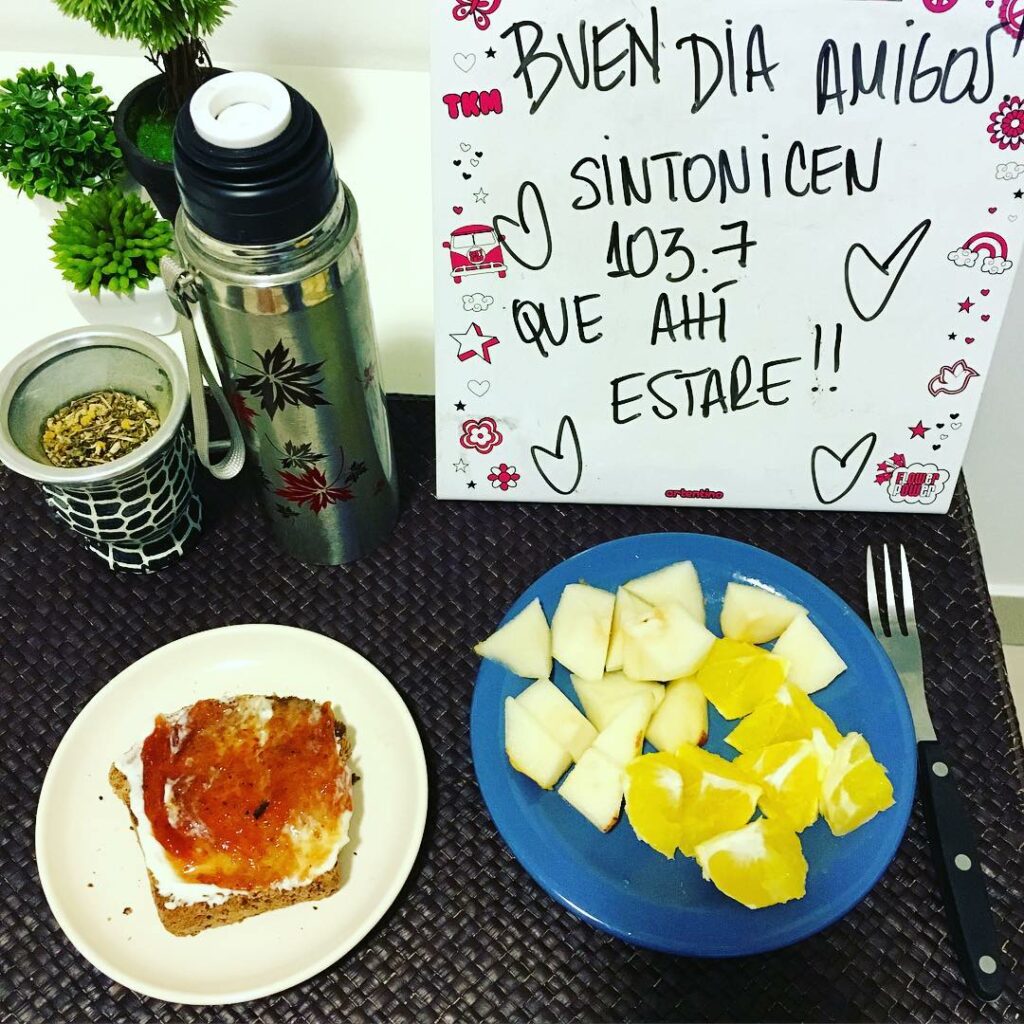 BUEN DIA AMIGOS
TKM
SINTONICEN
103.7
QUE AHÍ
ESTARE!!
FLOWER
POWER
artentino